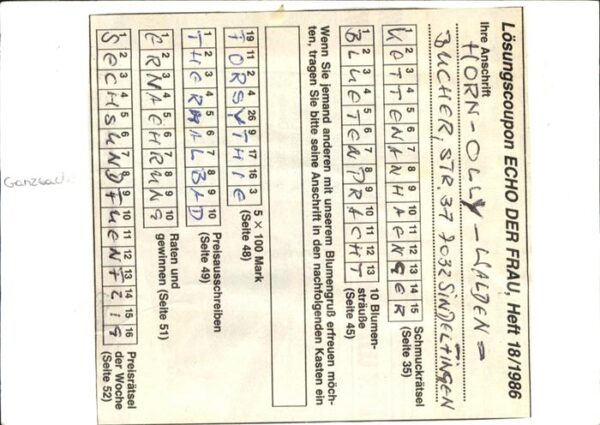 Lösungscoupon ECHO DER FRAU, Heft 18/1986
Ihre Anschrift
HORN-OLLY-WALDEN-
BUCHER, STR. 37 7032 SINDELFINGEN
1 2 3 4 5 6 7 8 9 10 11 12 13 14 15
KETTENANHAENGER
Schmuckrätsel
(Seite 35)
1 2 3 4 5 6 7 8 9 10 11 12 13
BLUETENPRACHT
10 Blumen-
sträuße (Seite 45)
Wenn Sie jemand anderen mit unserem Blumengruß erfreuen möch-
ten, tragen Sie bitte seine Anschrift in den nachfolgenden Kasten ein
19 11 2 4 26 9 17 16 3
TORSYTHIE
5 × 100 Mark
(Seite 48)
1 2 3 4 5 6 7 8 9 10
THERMALBAD
Preisausschreiben
(Seite 49)
1 2 3 4 5 6 7 8 9 10
ERNAEHRUNG
Raten und
gewinnen (Seite 51)
1 2 3 4 5 6 7 8 9 10 11 12 13 14 15 16
SECHSUNDFUENFZIG
Preisrätsel
der Woche
(Seite 52)